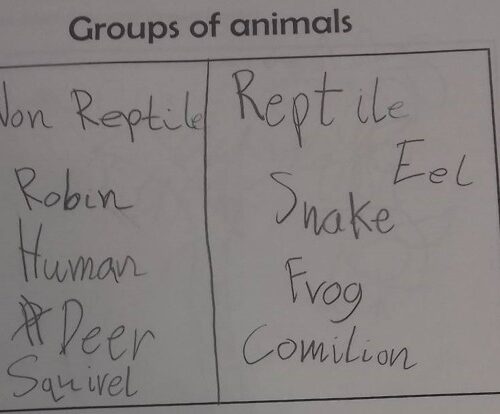 Groups of animals
Non Reptile
Robin
Human
Deer
Squirel
Reptile
Eel
Snake
Frog
Comilion